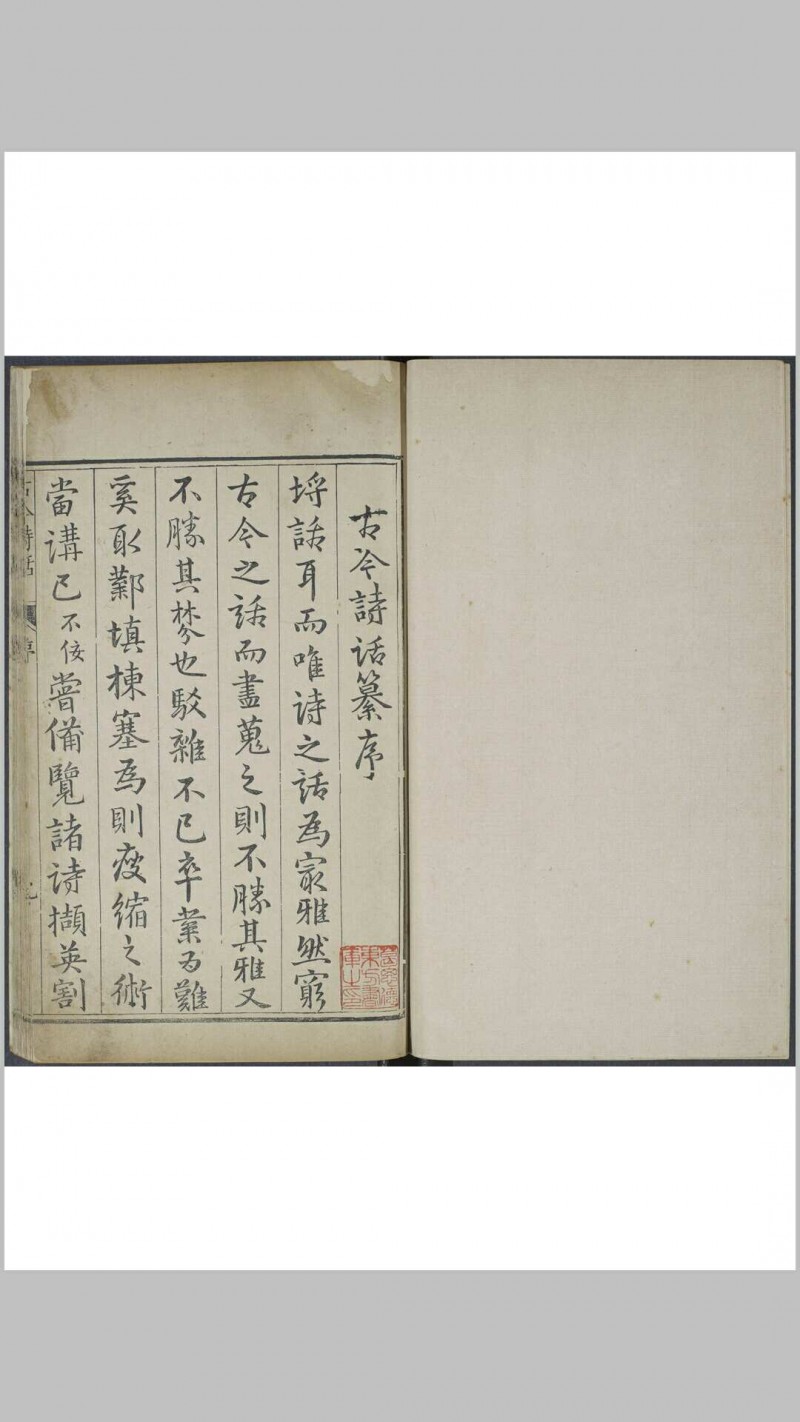 古今詩話纂序
埒話耳而唯詩之話為冣雅然窮
古今之話而盡蒐之則不勝其雅又
不勝其棼也駁雜不已卒業為難
奚取鄴填棟塞為則瘦縮之術
當講已不佞嘗備覽諸詩擷英割
古今詩話
序